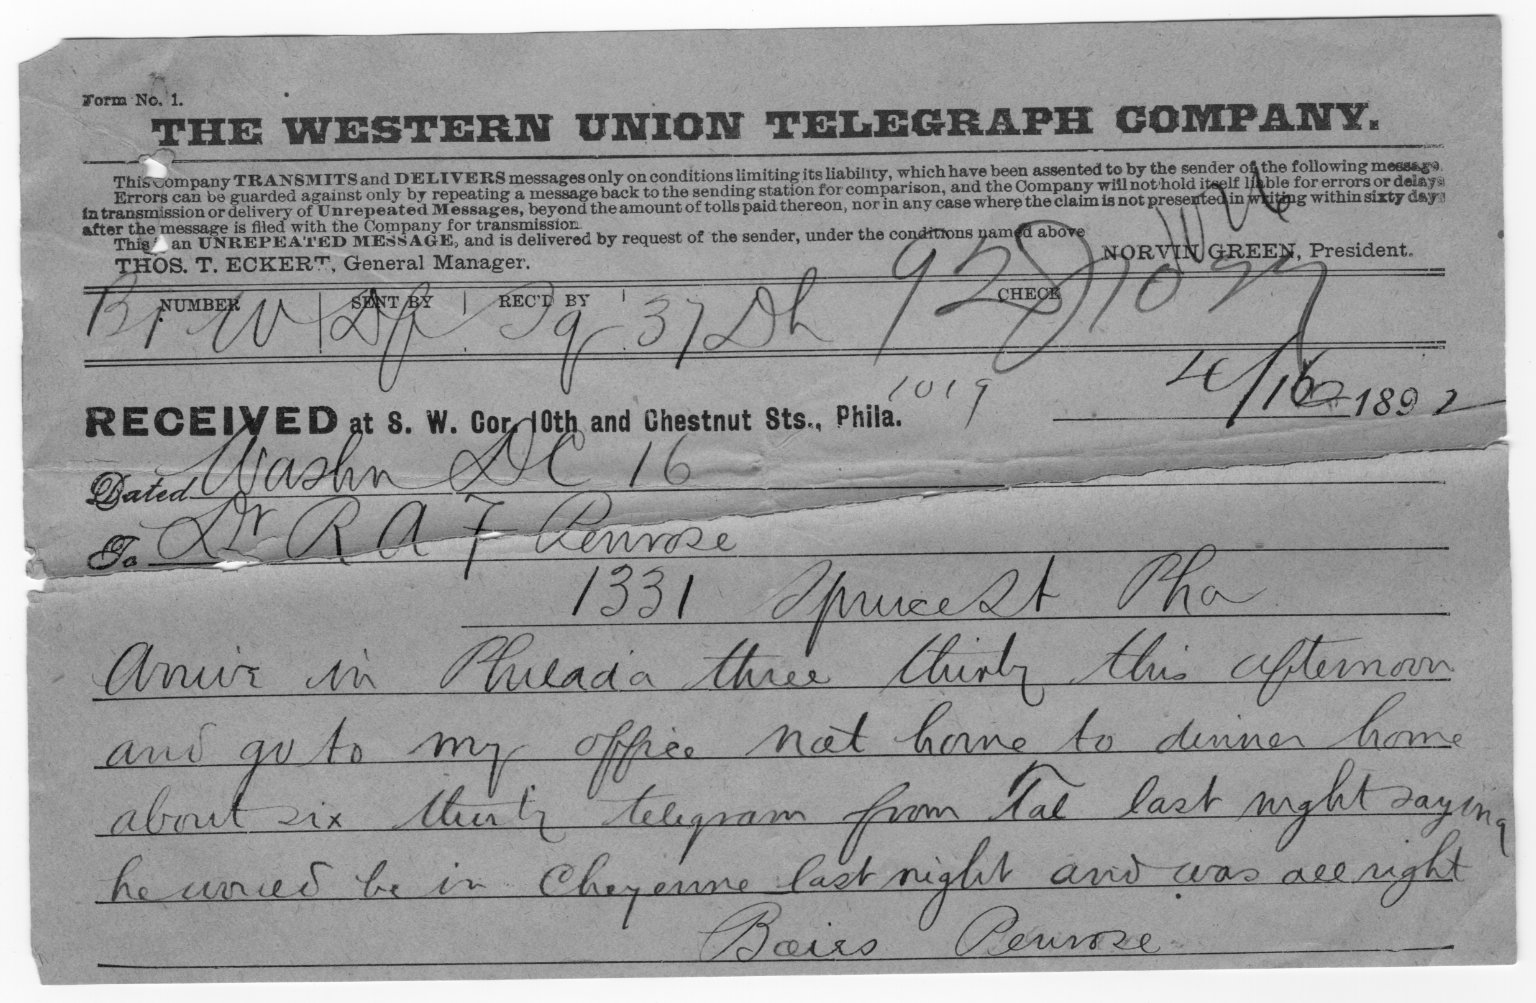 Form No. 1.
THE WESTERN UNION TELEGRAPH COMPANY.
This Company TRANSMITS and DELIVERS messages only on conditions limiting its liability, which have been assented to by the sender of the following message.
Errors can be guarded against only by repeating a message back to the sending station for comparison, and the Company will not hold itself liable for errors or delays
in transmission or delivery of Unrepeated Messages, beyond the amount of tolls paid thereon, nor in any case where the claim is not presented in writing within sixty days
after the message is filed with the Company for transmission.
This is an UNREPEATED MESSAGE, and is delivered by request of the sender, under the conditions named above
THOS. T. ECKERT, General Manager. NORVIN GREEN, President.
NUMBER SENT BY REC'D BY CHECK
37 Dh
1019
4/16 1892
RECEIVED at S. W. Cor. 10th and Chestnut Sts., Phila.
Dated Washn DC 16
To Dr R A F Penrose
1331 Spruce St Pha
Arrive in Philada three thirty this afternoon
and go to my office not home to dinner home
about six thirty telegram from Tal last night saying
he would be in Cheyenne last night and was all right
Boies Penrose